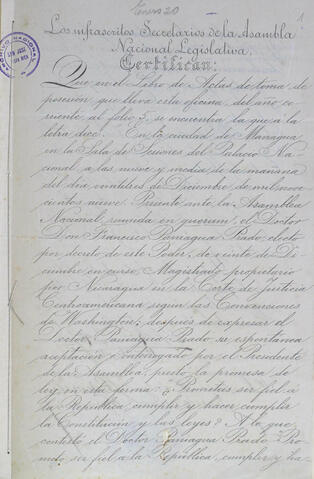 Enero 20
1
Los infrascritos Secretarios de la Asamblea
Nacional Legislativa.
Certifican:
Que en el Libro de Actas de toma de
posesión que lleva esta oficina del año co-
rriente al folio 7, se encuentra la que a la
letra dice. En la ciudad de Managua
en la Sala de Sesiones del Palacio Na-
cional a las nueve y media de la mañana
del día veintitres de Diciembre de mil nove-
cientos nueve. Presente ante la Asamblea
Nacional, reunida en quorum, el Doctor
Don Francisco Paniagua Prado, electo
por decreto de este Poder, de veinte de Di-
ciembre en curso, Magistrado propietario
por Nicaragua en la Corte de Justicia
Centroamericana según las Convenciones
de Washington; después de expresar el
Doctor Paniagua Prado su espontánea
aceptación e interrogado por el Presidente
de la Asamblea, prestó la promesa de
ley en esta forma: ¿Prometéis ser fiel á
la República, cumplir y hacer cumplir
la Constitución y las leyes? A lo que
contestó el Doctor Paniagua Prado: Pro-
meto ser fiel á la República, cumplir y ha-